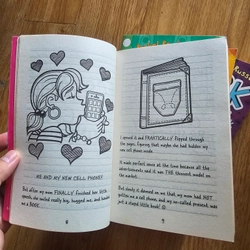 ME AND MY NEW CELL PHONE!!
But after my mom FINALLY finished her little
speech, she smiled really big, hugged me, and handed
me a BOOK.
6
I opened it and FRANTICALLY flipped through
the pages, figuring that maybe she had hidden my
new cell phone inside.
It made perfect sense at the time because all the
advertisements said it was THE thinnest model on
the market.
But slowly it dawned on me that my mom had NOT
gotten me a cell phone, and my so-called present was
just a stupid little book! ☹
7
RUSSELL